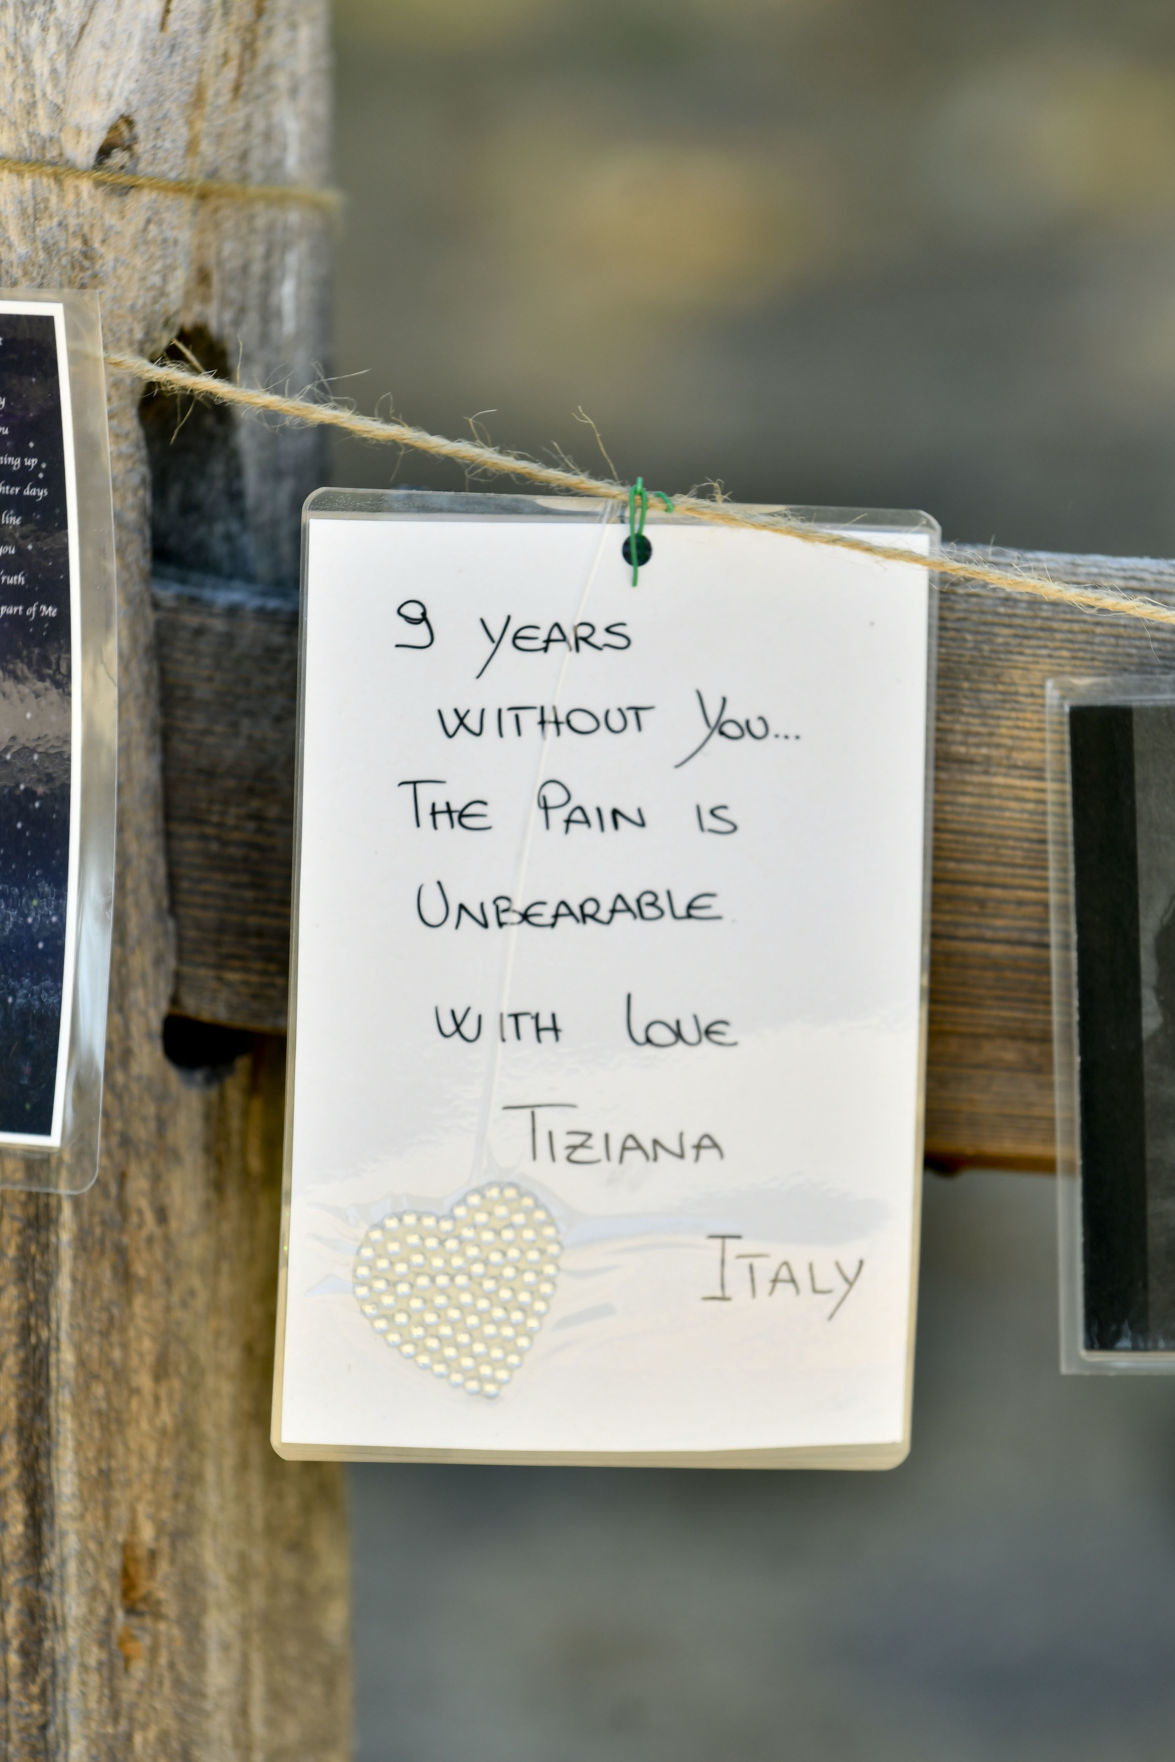 y
ou
ning up
hter days
line
you
ruth
part of Me
9 YEARS
WITHOUT YOU...
THE PAIN IS
UNBEARABLE
WITH LOVE
TIZIANA
ITALY